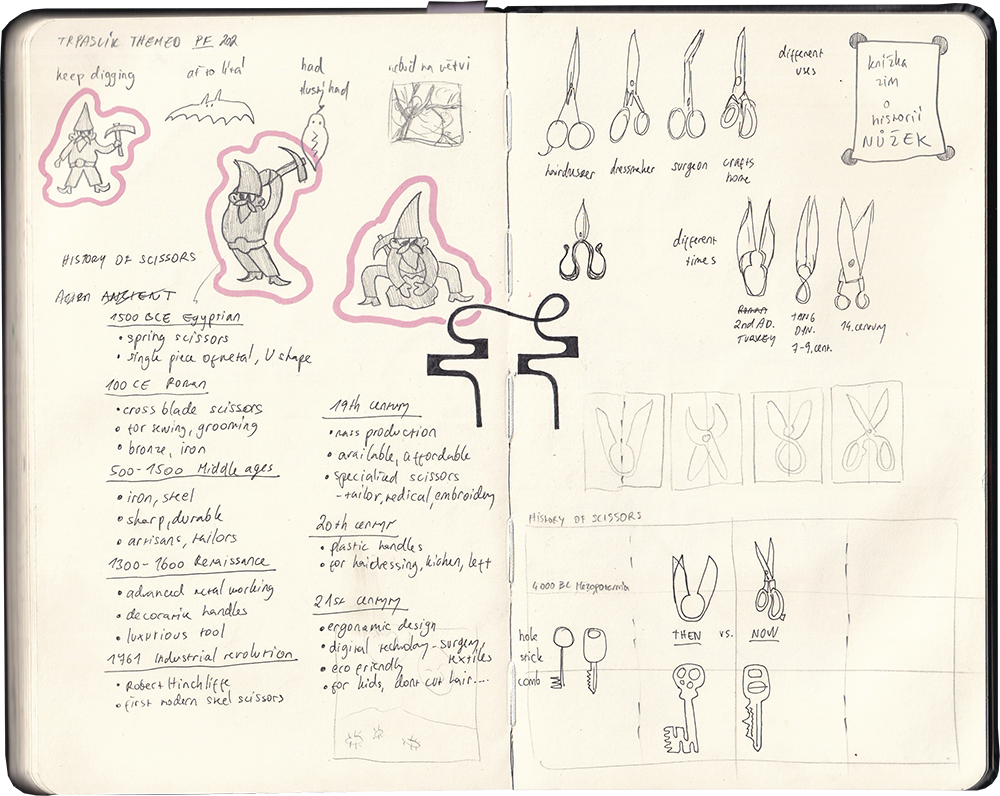 TRPASLÍK THEMED PF 202
keep digging
ať to lítá!
had
tlustý had
nebuď na větvi
HISTORY OF SCISSORS
ANCIENT
1500 BCE Egyptian
• spring scissors
• single piece of metal, U shape
100 CE Roman
• cross blade scissors
• for sewing, grooming
• bronze, iron
500-1500 Middle ages
• iron, steel
• sharp, durable
• artisans, tailors
1300-1600 Renaissance
• advanced metal working
• decorative handles
• luxurious tool
1761 Industrial revolution
• Robert Hinchliffe
• first modern steel scissors
19th century
• mass production
• available, affordable
• specialized scissors
- tailor, medical, embroidery
20th centyr
• plastic handles
• for hairdressing, kichen, left
21st century
• ergonomic design
• digital technology - surgery,
textiles
• eco friendly
• for kids, dont cut hair....
different
uses
hairdresser
dressmaker
surgeon
crafts
home
knížka
zim
o
historii
NŮŽEK
different
times
ROMAN
2nd AD.
TURKEY
TANG
DYN.
7-9. cent.
14. century
HISTORY OF SCISSORS
4000 BC Mezopotamia
THEN vs. NOW
hole
stick
comb